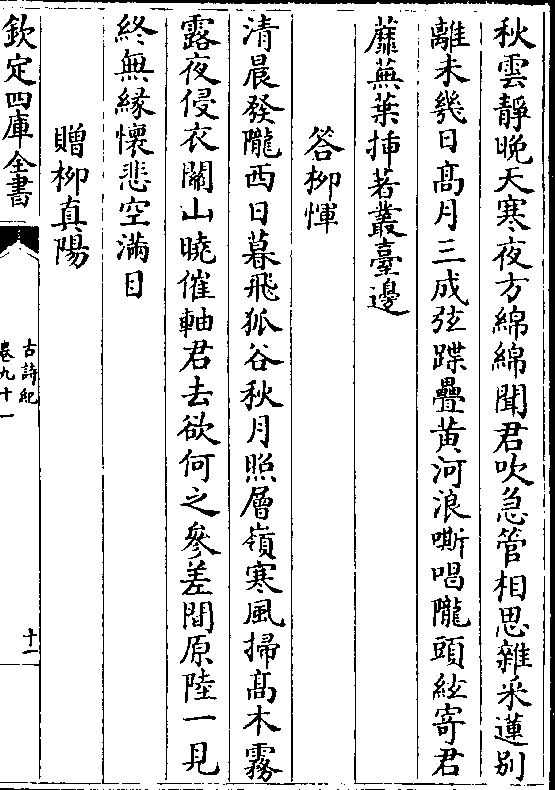 秋雲靜晚天寒夜方綿綿聞君吹急管相思雜采蓮别
離未幾日髙月三成弦蹀疊黄河浪嘶唱隴頭蟬寄君
蘼蕪葉揷著叢臺邊
答柳惲
清晨發隴西日暮飛狐谷秋月照層嶺寒風掃髙木霧
露夜侵衣關山曉催軸君去欲何之參差間原陸一見
終無緣懷悲空滿目
贈柳真陽
欽定四庫全書
古詩紀
卷九十一
十一